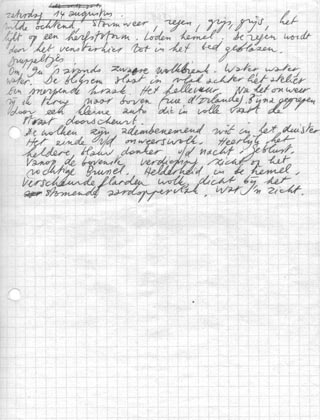 zaterdag 14 augustus
ochtend, stormweer, regen, grijs, grijs, het
lijkt op een herfststorm. Loden hemel. De regen wordt
door het vensterkier tot in het bed geblazen.
druppeltjes
Om savonds zware wolkbreuk. Water water
water. De straat achter het atelier
Een morgende kraak. Het Na het onweer
rij ik terug naar boven rue d'orlande, bijna gegrepen
door een kleine auto die in volle vaart de
straat doorscheurt.
De wolken zijn adembenemend wit in het duister
Het einde v/d onweerswolk. Heerlijk het
heldere blauw donker v/d nacht
Vanop de bovenste verdieping zicht op het
vochtige Brussel. Helderheid in de hemel.
Verscheurde flarden wolk dicht bij het
stomende aardoppervlak. Wat 'n zicht.